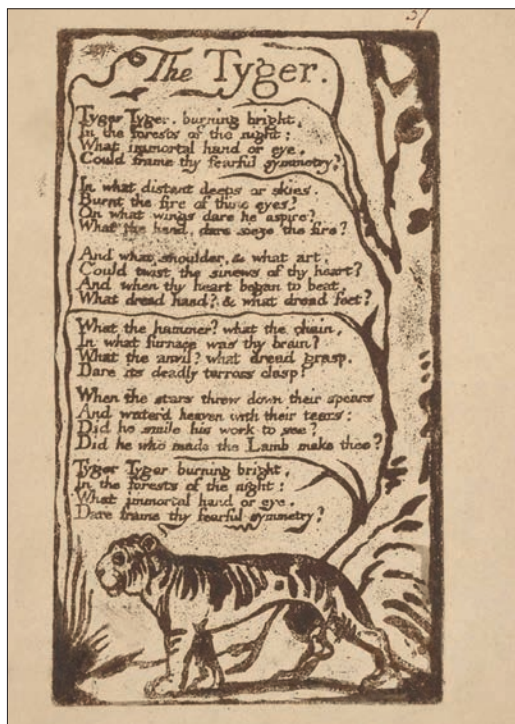 The Tyger.
Tyger Tyger, burning bright,
In the forests of the night:
What immortal hand or eye,
Could frame thy fearful symmetry?
In what distant deeps or skies.
Burnt the fire of thine eyes?
On what wings dare he aspire?
What the hand, dare sieze the fire?
And what shoulder, & what art,
Could twist the sinews of thy heart?
And when thy heart began to beat,
What dread hand? & what dread feet?
What the hammer? what the chain,
In what furnace was thy brain?
What the anvil? what dread grasp,
Dare its deadly terrors clasp!
When the stars threw down their spears
And water'd heaven with their tears:
Did he smile his work to see?
Did he who made the Lamb make thee?
Tyger Tyger burning bright,
In the forests of the night:
What immortal hand or eye,
Dare frame thy fearful symmetry?